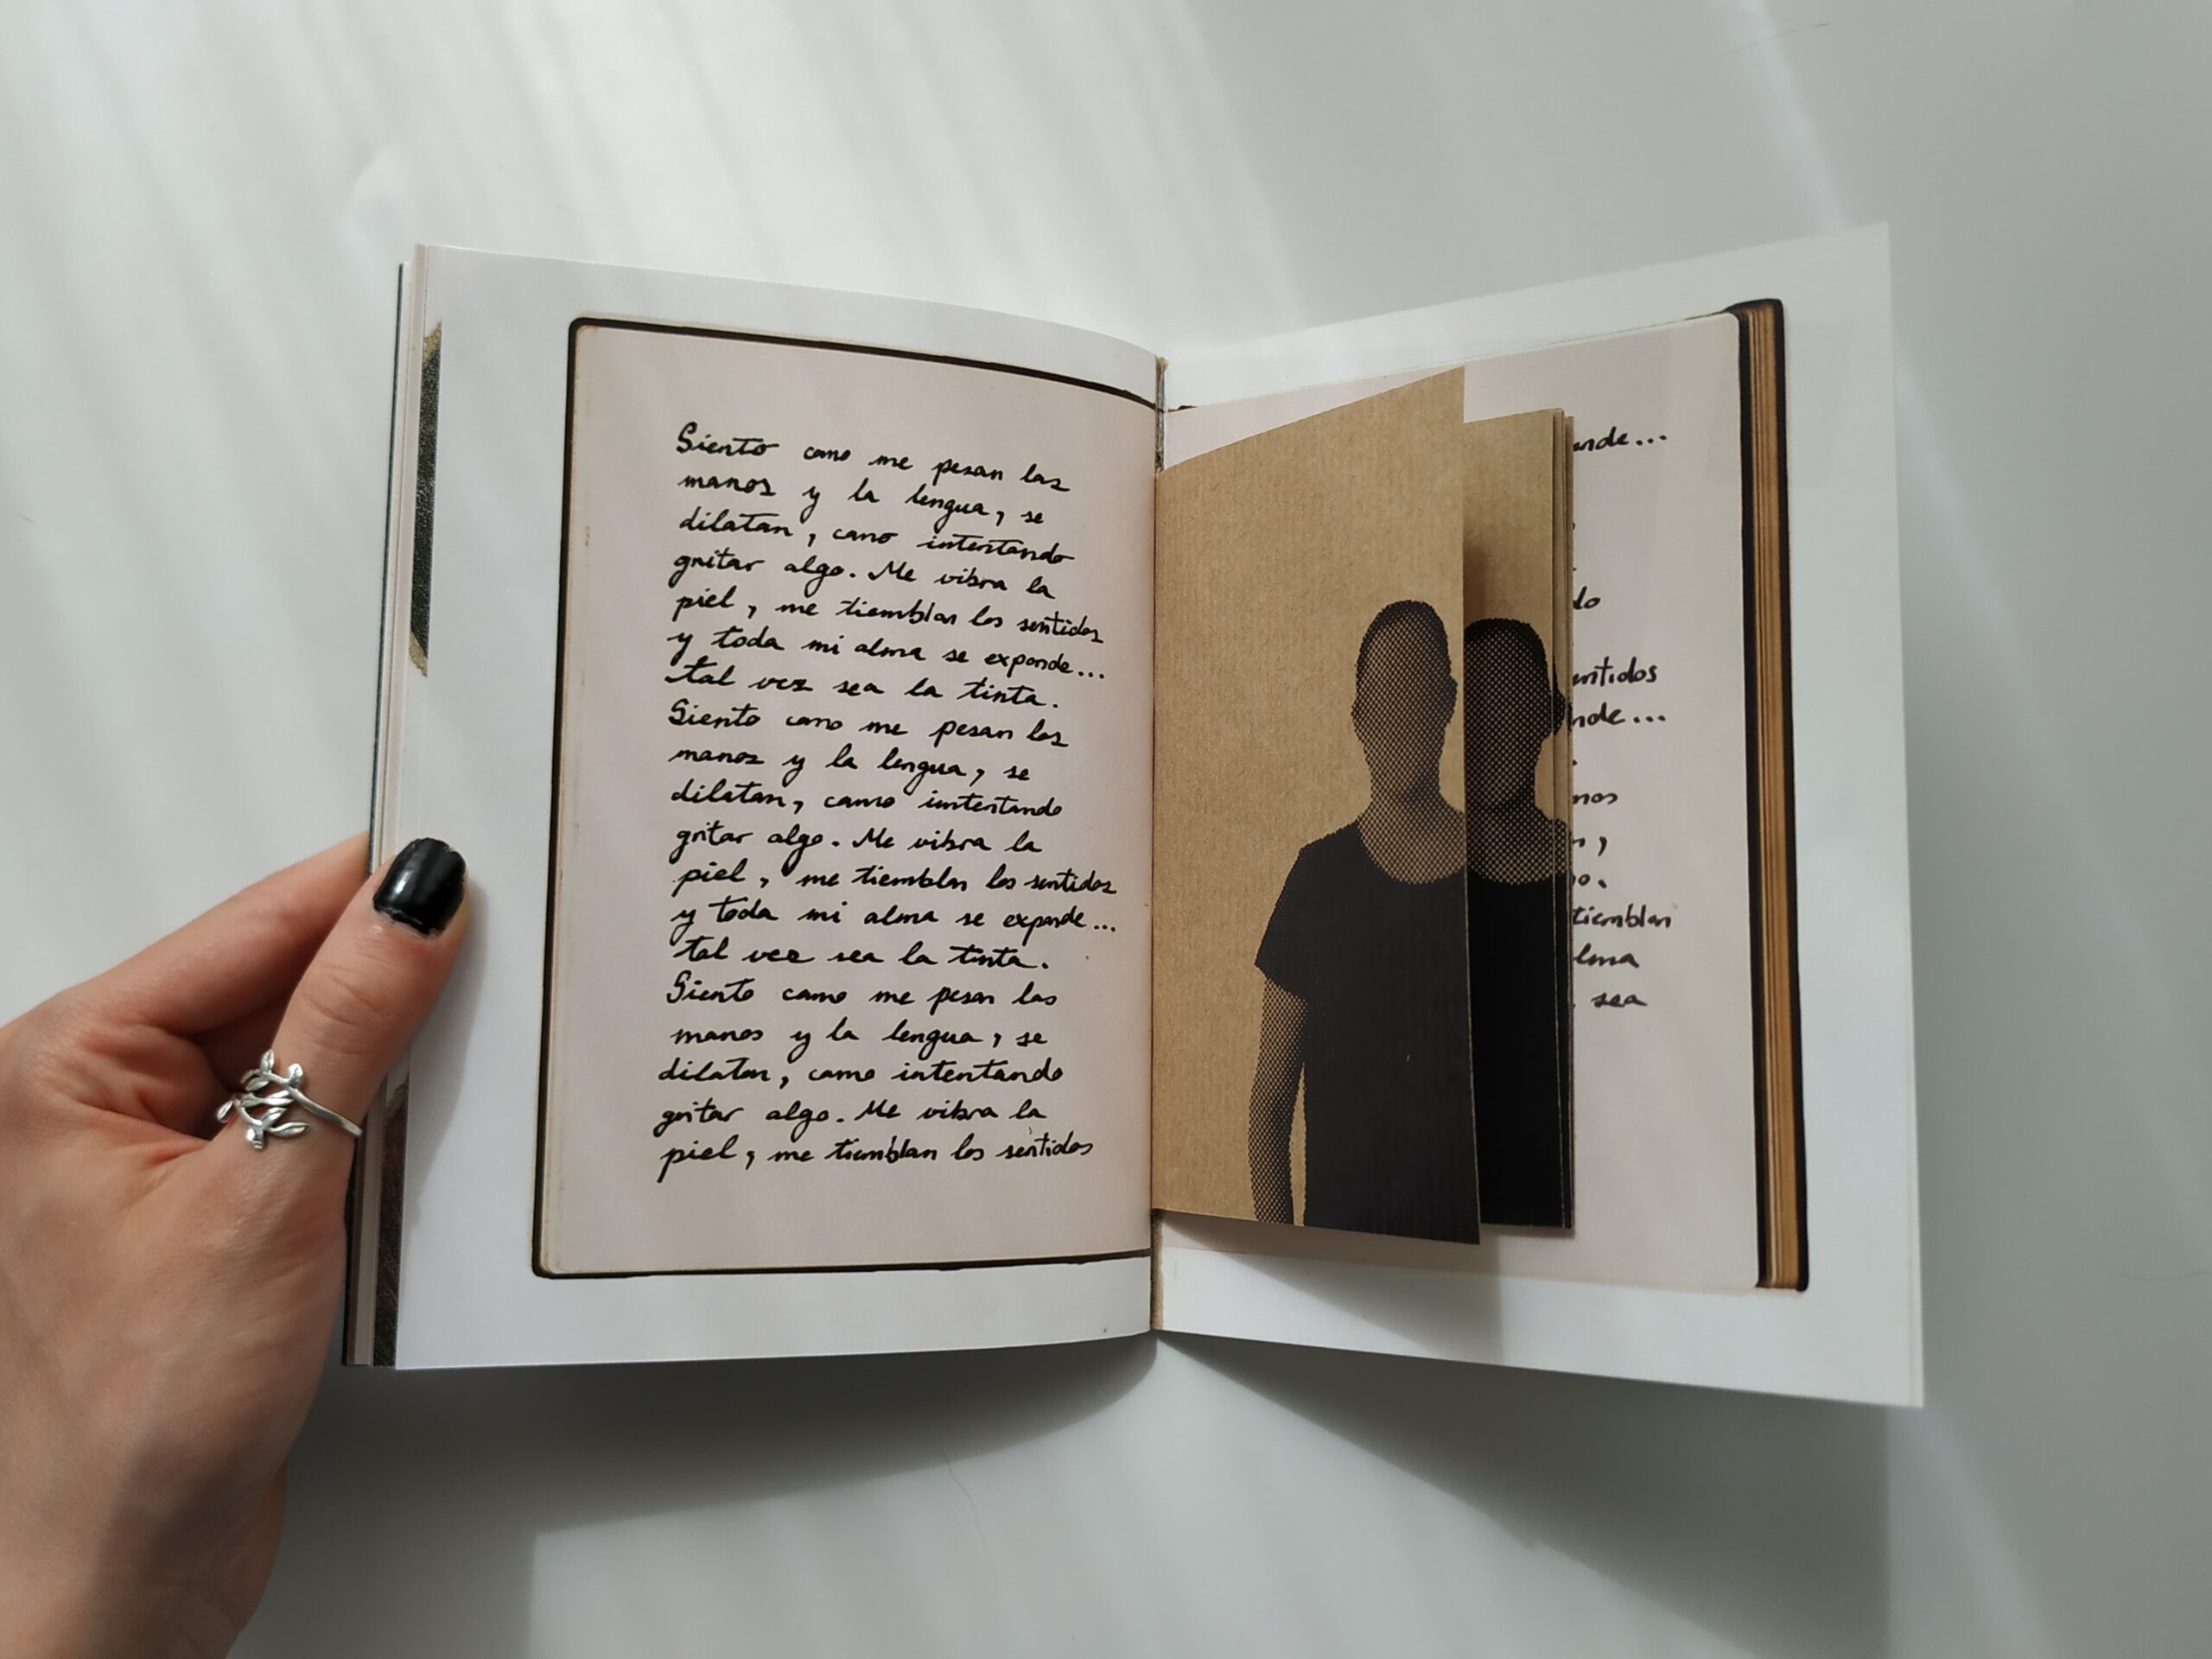 Siento como me pesan las
manos y la lengua, se
dilatan, como intentando
gritar algo. Me vibra la
piel, me tiemblan los sentidos
y toda mi alma se expande...
tal vez sea la tinta.
Siento como me pesan las
manos y la lengua, se
dilatan, como intentando
gritar algo. Me vibra la
piel, me tiemblan los sentidos
y toda mi alma se expande...
tal vez sea la tinta.
Siento como me pesan las
manos y la lengua, se
dilatan, como intentando
gritar algo. Me vibra la
piel, me tiemblan los sentidos
ande...
do
entidos
nde...
nos
,
o.
tiemblan
lma
sea